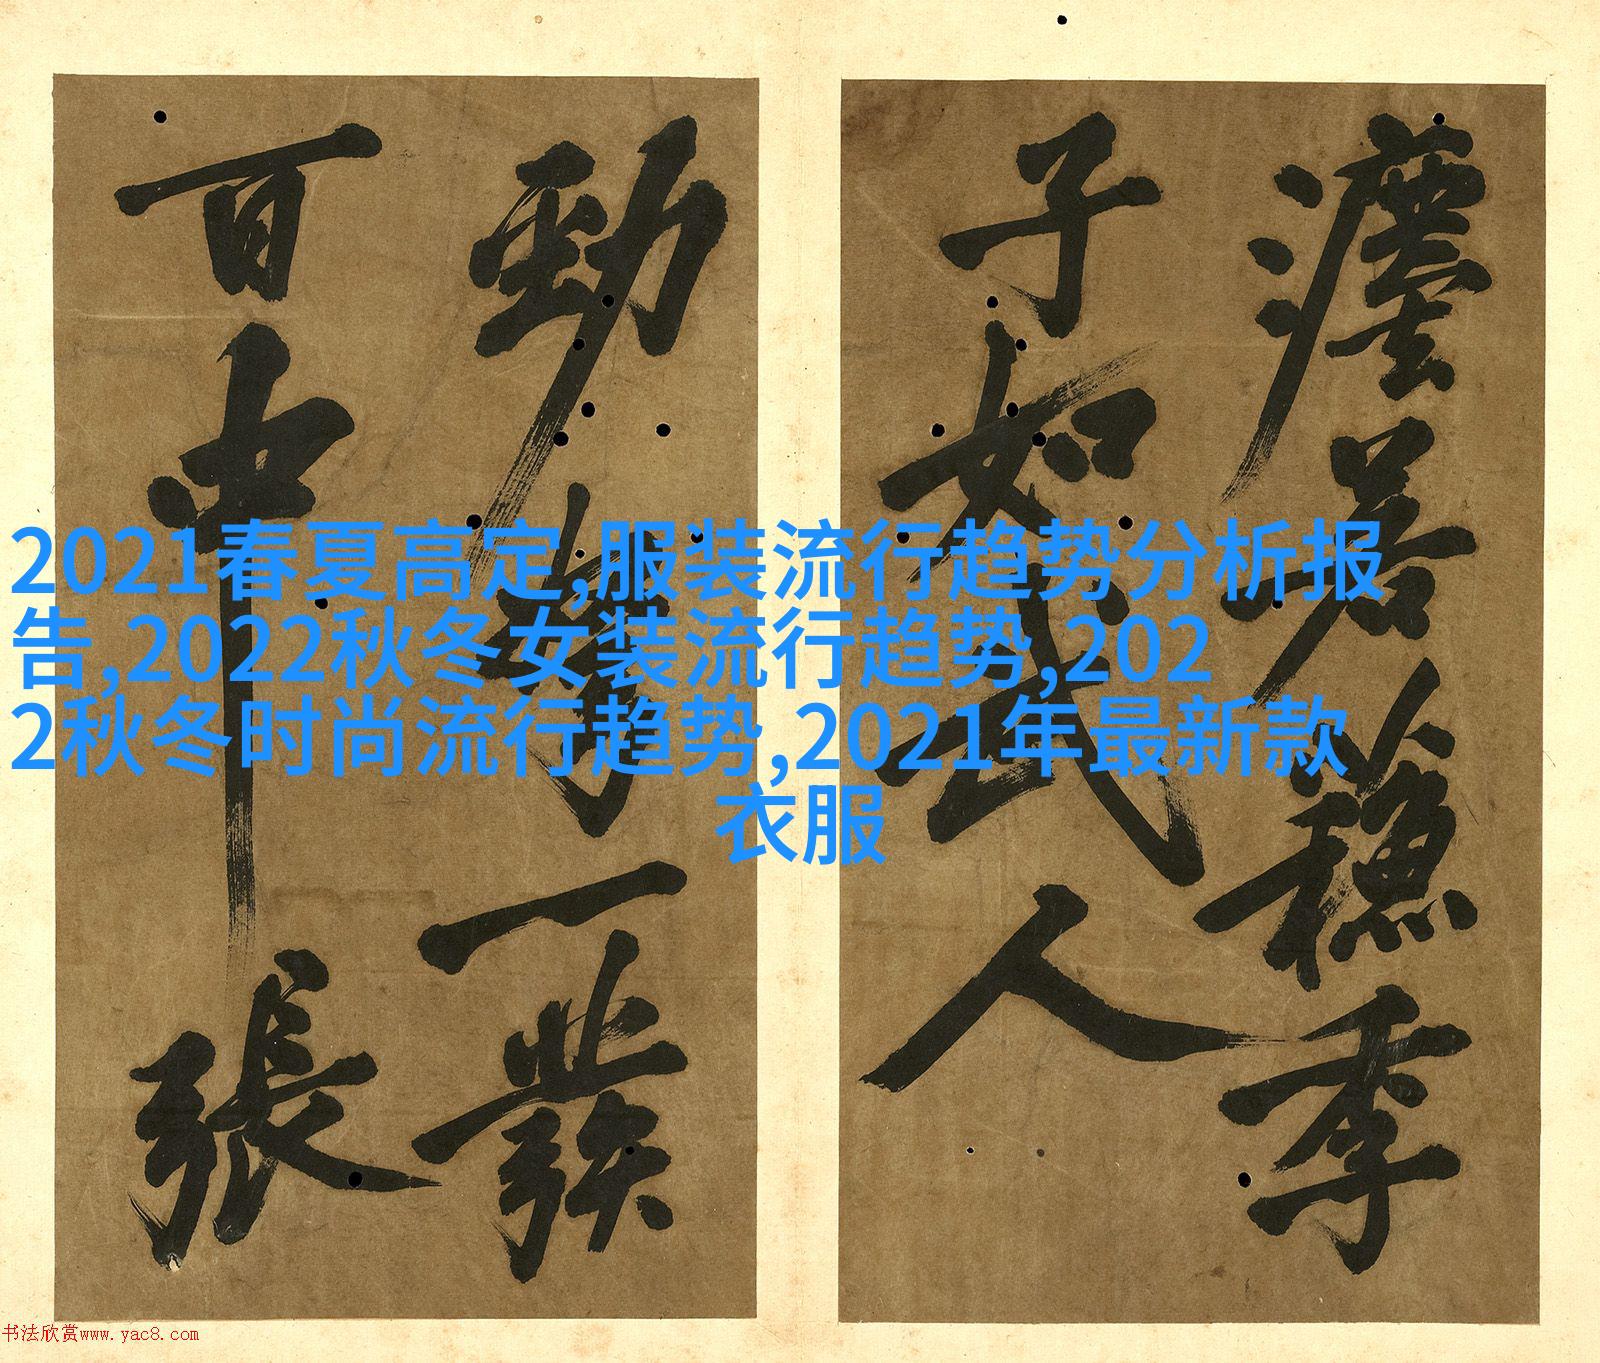 2021春夏高定,服装流行趋势分析报
告,2022秋冬女装流行趋势,202
2秋冬时尚流行趋势,2021年最新款
衣服
若 季
子如武人
勁弩一發
百中張
书法欣赏www.yac8.com